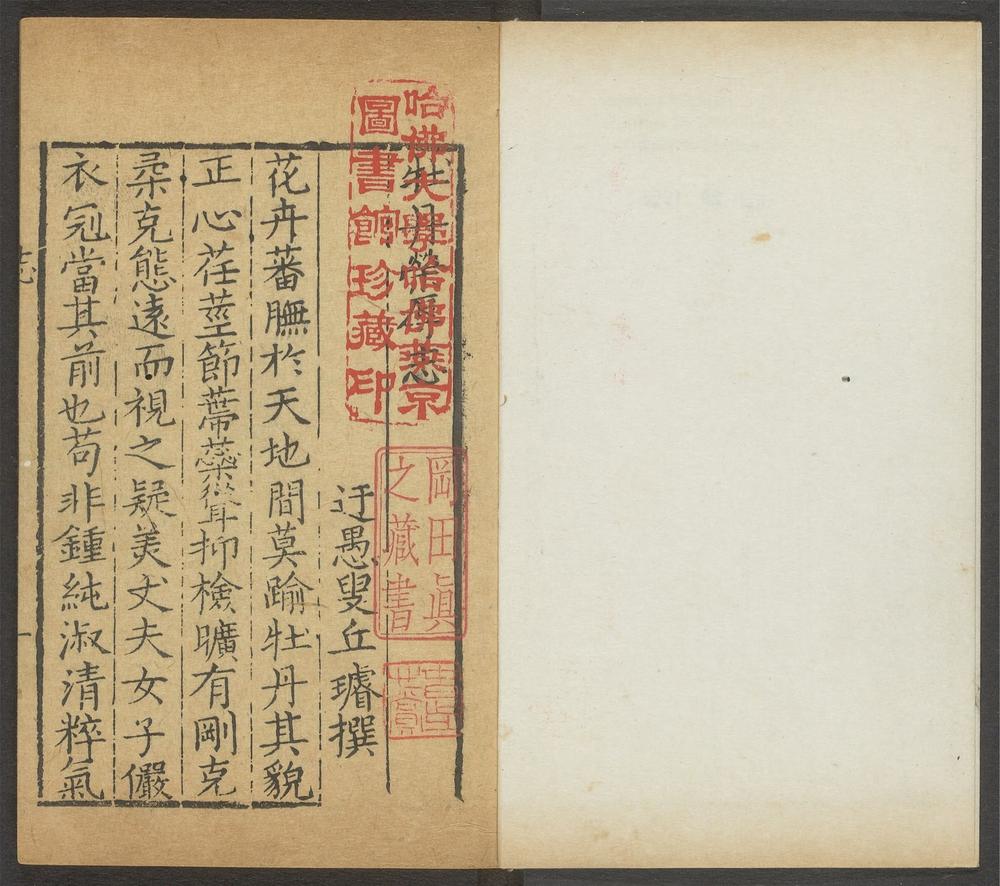 牡丹榮辱志
迂愚叟丘璿撰
花卉蕃膴於天地間莫踰牡丹其貌
正心荏莖節蔕蘂聳抑檢曠有剛克
柔克態遠而視之疑美丈夫女子儼
衣冠當其前也苟非鍾純淑清粹氣
志
一
哈佛大學哈佛燕京
圖書館珍藏印
岡田眞
之藏書